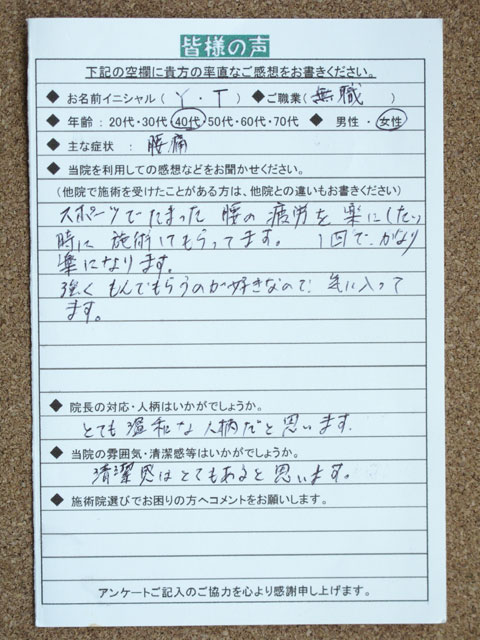 皆様の声
下記の空欄に貴方の率直なご感想をお書きください。
◆ お名前イニシャル（ Y ・ T ） ◆ご職業（ 無職 ）
◆ 年齢：20代・30代 40代 50代・60代・70代 ◆ 男性・女性
◆ 主な症状 ： 腰痛
◆ 当院を利用しての感想などをお聞かせください。
（他院で施術を受けたことがある方は、他院との違いもお書きください）
スポーツでたまった 腰の 疲労を 楽にしたい
時に 施術してもらってます。 1回で、かなり
楽になります。
強く もんでもらうのが好きなので 気に入って
ます。
◆ 院長の対応・人柄はいかがでしょうか。
とても 温和な 人柄だと 思います.
◆ 当院の雰囲気・清潔感等はいかがでしょうか。
清潔感はとてもあると 思います。
◆ 施術院選びでお困りの方へコメントをお願いします。
アンケートご記入のご協力を心より感謝申し上げます。